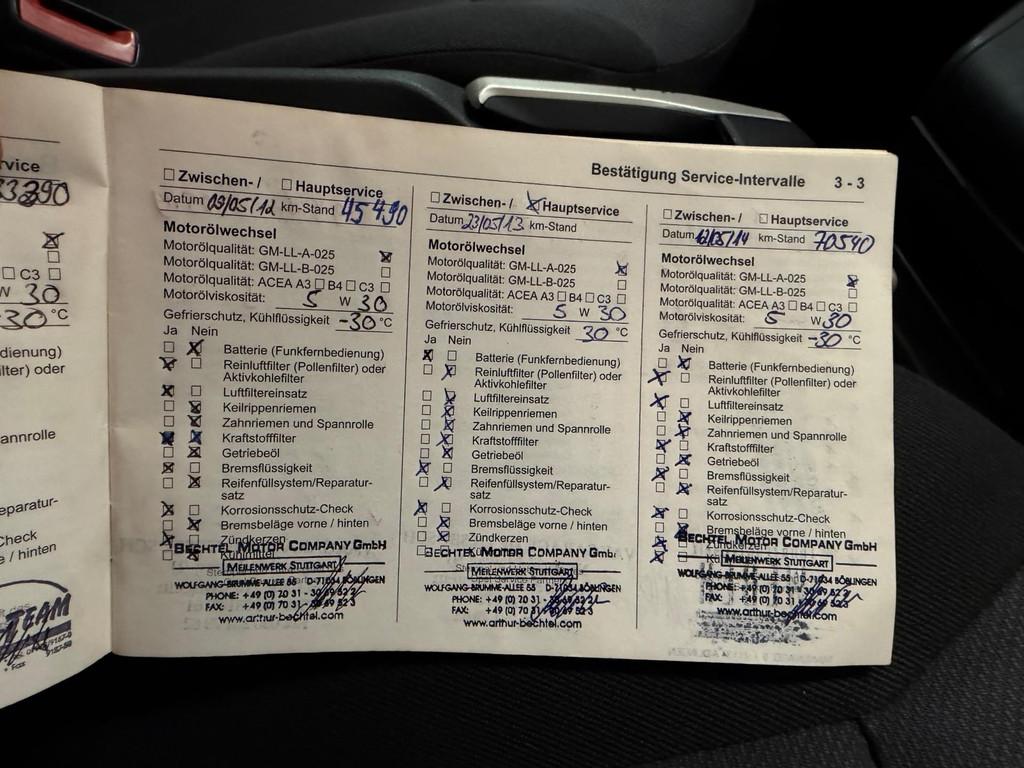 rvice
33290
C3
W 30
-30 °C
dienung)
ilter) oder
annrolle
eparatur-
Check
e / hinten
TEAM
Bestätigung Service-Intervalle 3 - 3
Zwischen- / Hauptservice
Datum 09/05/12 km-Stand 45490
Motorölwechsel
Motorölqualität: GM-LL-A-025
Motorölqualität: GM-LL-B-025
Motorölqualität: ACEA A3 B4 C3
Motorölviskosität: 5 W 30
Gefrierschutz, Kühlflüssigkeit -30 °C
Ja Nein
Batterie (Funkfernbedienung)
Reinluftfilter (Pollenfilter) oder
Aktivkohlefilter
Luftfiltereinsatz
Keilrippenriemen
Zahnriemen und Spannrolle
Kraftstofffilter
Getriebeöl
Bremsflüssigkeit
Reifenfüllsystem/Reparatur-
satz
Korrosionsschutz-Check
Bremsbeläge vorne / hinten
Zündkerzen
BECHTEL MOTOR COMPANY GMBH
Kühlmittel
MEILENWERK STUTTGART
WOLFGANG-BRUMME-ALLEE 55 D-71034 BÖBLINGEN
PHONE: +49 (0) 70 31 - 30 69 52 3
FAX: +49 (0) 70 31 -
www.arthur-bechtel.com
Zwischen- / Hauptservice
Datum 23/05/13 km-Stand
Motorölwechsel
Motorölqualität: GM-LL-A-025
Motorölqualität: GM-LL-B-025
Motorölqualität: ACEA A3 B4 C3
Motorölviskosität: 5 W 30
Gefrierschutz, Kühlflüssigkeit 30 °C
Ja Nein
Batterie (Funkfernbedienung)
Reinluftfilter (Pollenfilter) oder
Aktivkohlefilter
Luftfiltereinsatz
Keilrippenriemen
Zahnriemen und Spannrolle
Kraftstofffilter
Getriebeöl
Bremsflüssigkeit
Reifenfüllsystem/Reparatur-
satz
Korrosionsschutz-Check
Bremsbeläge vorne / hinten
Zündkerzen
BECHTEL MOTOR COMPANY GMBH
MEILENWERK STUTTGART
WOLFGANG-BRUMME-ALLEE 55 D-71034 BÖBLINGEN
PHONE: +49 (0) 70 31 -
FAX: +49 (0) 70 31 -
www.arthur-bechtel.com
Zwischen- / Hauptservice
Datum 12/05/14 km-Stand 70540
Motorölwechsel
Motorölqualität: GM-LL-A-025
Motorölqualität: GM-LL-B-025
Motorölqualität: ACEA A3 B4 C3
Motorölviskosität: 5 W 30
Gefrierschutz, Kühlflüssigkeit -30 °C
Ja Nein
Batterie (Funkfernbedienung)
Reinluftfilter (Pollenfilter) oder
Aktivkohlefilter
Luftfiltereinsatz
Keilrippenriemen
Zahnriemen und Spannrolle
Kraftstofffilter
Getriebeöl
Bremsflüssigkeit
Reifenfüllsystem/Reparatur-
satz
Korrosionsschutz-Check
Bremsbeläge vorne / hinten
Zündkerzen
BECHTEL MOTOR COMPANY GMBH
MEILENWERK STUTTGART
WOLFGANG-BRUMME-ALLEE 55 D-71034 BÖBLINGEN
PHONE: +49 (0) 70 31 - 30 69 52 3
FAX: +49 (0) 70 31 -
www.arthur-bechtel.com